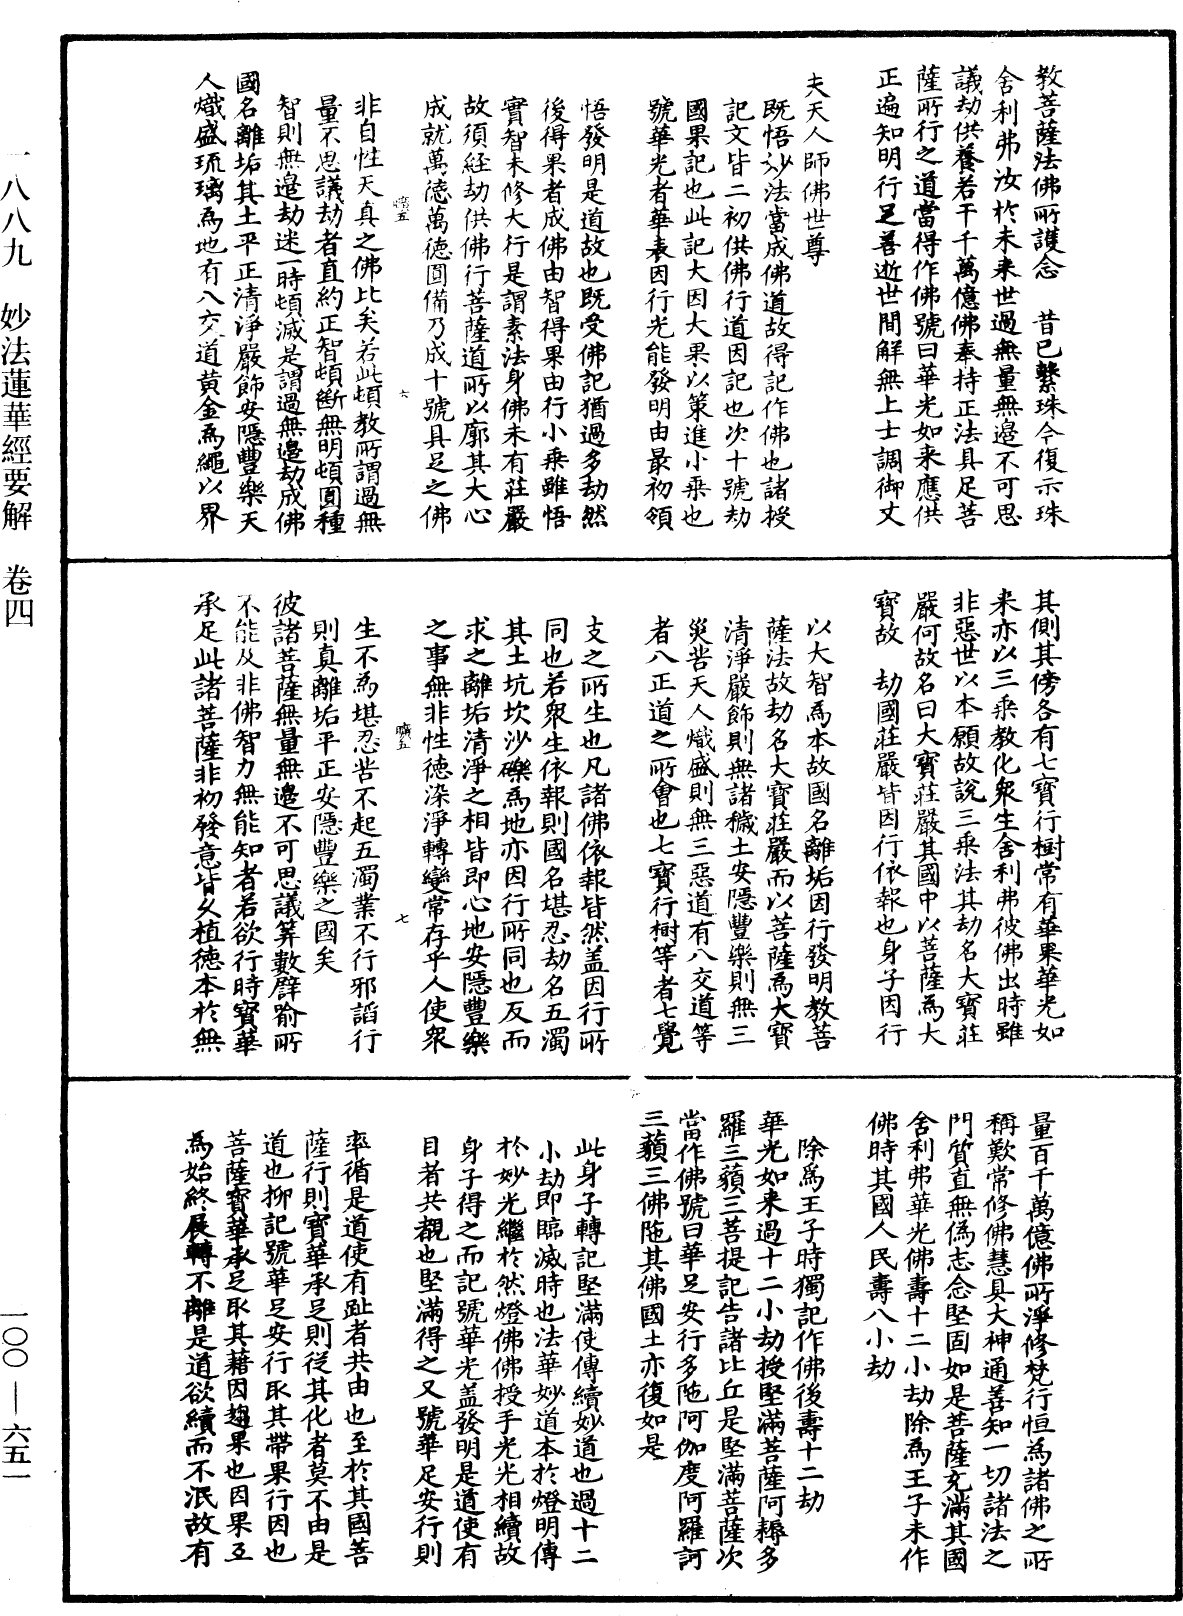 教菩薩法佛所護念　昔已繫珠今復示珠
舍利弗汝於未來世過無量無邊不可思
議劫供養若干千萬億佛奉持正法具足菩
薩所行之道當得作佛號曰華光如來應供
正遍知明行足善逝世間解無上士調御丈
夫天人師佛世尊
既悟妙法當成佛道故得記作佛也諸授
記文皆二初供佛行道因記也次十號劫
國果記也此記大因大果以策進小乘也
號華光者華表因行光能發明由最初領
悟發明是道故也既受佛記猶過多劫然
後得果者成佛由智得果由行小乘雖悟
實智未修大行是謂素法身佛未有莊嚴
故須經劫供佛行菩薩道所以廓其大心
成就萬德萬德圓備乃成十號具足之佛
曠五　六
非自性天真之佛比矣若此頓教所謂過無
量不思議劫者直約正智頓斷無明頓圓種
智則無邊劫迷一時頓滅是謂過無邊劫成佛
國名離垢其土平正清淨嚴飾安隱豐樂天
人熾盛琉璃為地有八交道黃金為繩以界
其側其傍各有七寶行樹常有華果華光如
來亦以三乘教化眾生舍利弗彼佛出時雖
非惡世以本願故說三乘法其劫名大寶莊
嚴何故名曰大寶莊嚴其國中以菩薩為大
寶故　劫國莊嚴皆因行依報也身子因行
以大智為本故國名離垢因行發明教菩
薩法故劫名大寶莊嚴而以菩薩為大寶
清淨嚴飾則無諸穢土安隱豐樂則無三
災苦天人熾盛則無三惡道有八交道等
者八正道之所會也七寶行樹等者七覺
支之所生也凡諸佛依報皆然蓋因行所
同也若眾生依報則國名堪忍劫名五濁
其土坑坎沙礫為地亦因行所同也反而
求之離垢清淨之相皆即心地安隱豐樂
之事無非性德染淨轉變常存乎人使眾
曠五　七
生不為堪忍苦不起五濁業不行邪諂行
則真離垢平正安隱豐樂之國矣
彼諸菩薩無量無邊不可思議筭數譬喻所
不能及非佛智力無能知者若欲行時寶華
承足此諸菩薩非初發意皆久植德本於無
量百千萬億佛所淨修梵行恒為諸佛之所
稱歎常修佛慧具大神通善知一切諸法之
門質直無偽志念堅固如是菩薩充滿其國
舍利弗華光佛壽十二小劫除為王子未作
佛時其國人民壽八小劫
除為王子時獨記作佛後壽十二劫
華光如來過十二小劫授堅滿菩薩阿耨多
羅三藐三菩提記告諸比丘是堅滿菩薩次
當作佛號曰華足安行多陀阿伽度阿羅訶
三藐三佛陀其佛國土亦復如是
此身子轉記堅滿使傳續妙道也過十二
小劫即臨滅時也法華妙道本於燈明傳
於妙光繼於然燈佛佛授手光光相續故
身子得之而記號華光蓋發明是道使有
目者共覩也堅滿得之又號華足安行則
率循是道使有趾者共由也至於其國菩
薩行則寶華承足則從其化者莫不由是
道也抑記號華足安行取其帶果行因也
菩薩寶華承足取其藉因趨果也因果互
為始終展轉不離是道欲續而不泯故有
一八八九　妙法蓮華經要解　卷四
一〇〇—六五一